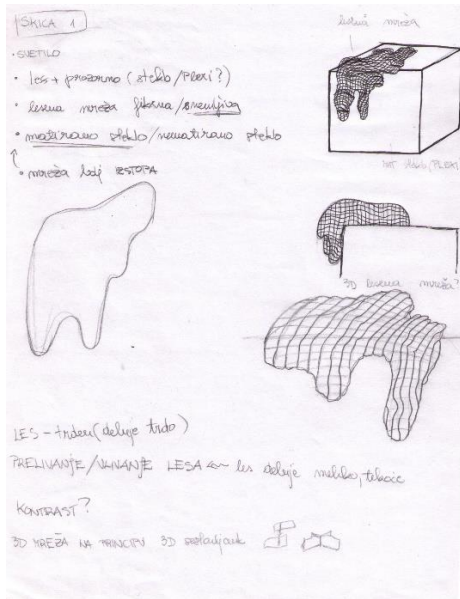 SKICA 1
lesna mreža
• SVETILO
• les + prozorno (steklo/PLEXI?)
• lesena mreža fiksna/snemljiva
• matirano steklo/nematirano steklo
• mreža bolj IZSTOPA
steklo, PLEXI
3D lesena mreža?
LES - trden (deluje trdo)
PRELIVANJE/VLIVANJE LESA les deluje mehko, tekoče
KONTRAST?
3D MREŽA NA PRINCIPU 3D